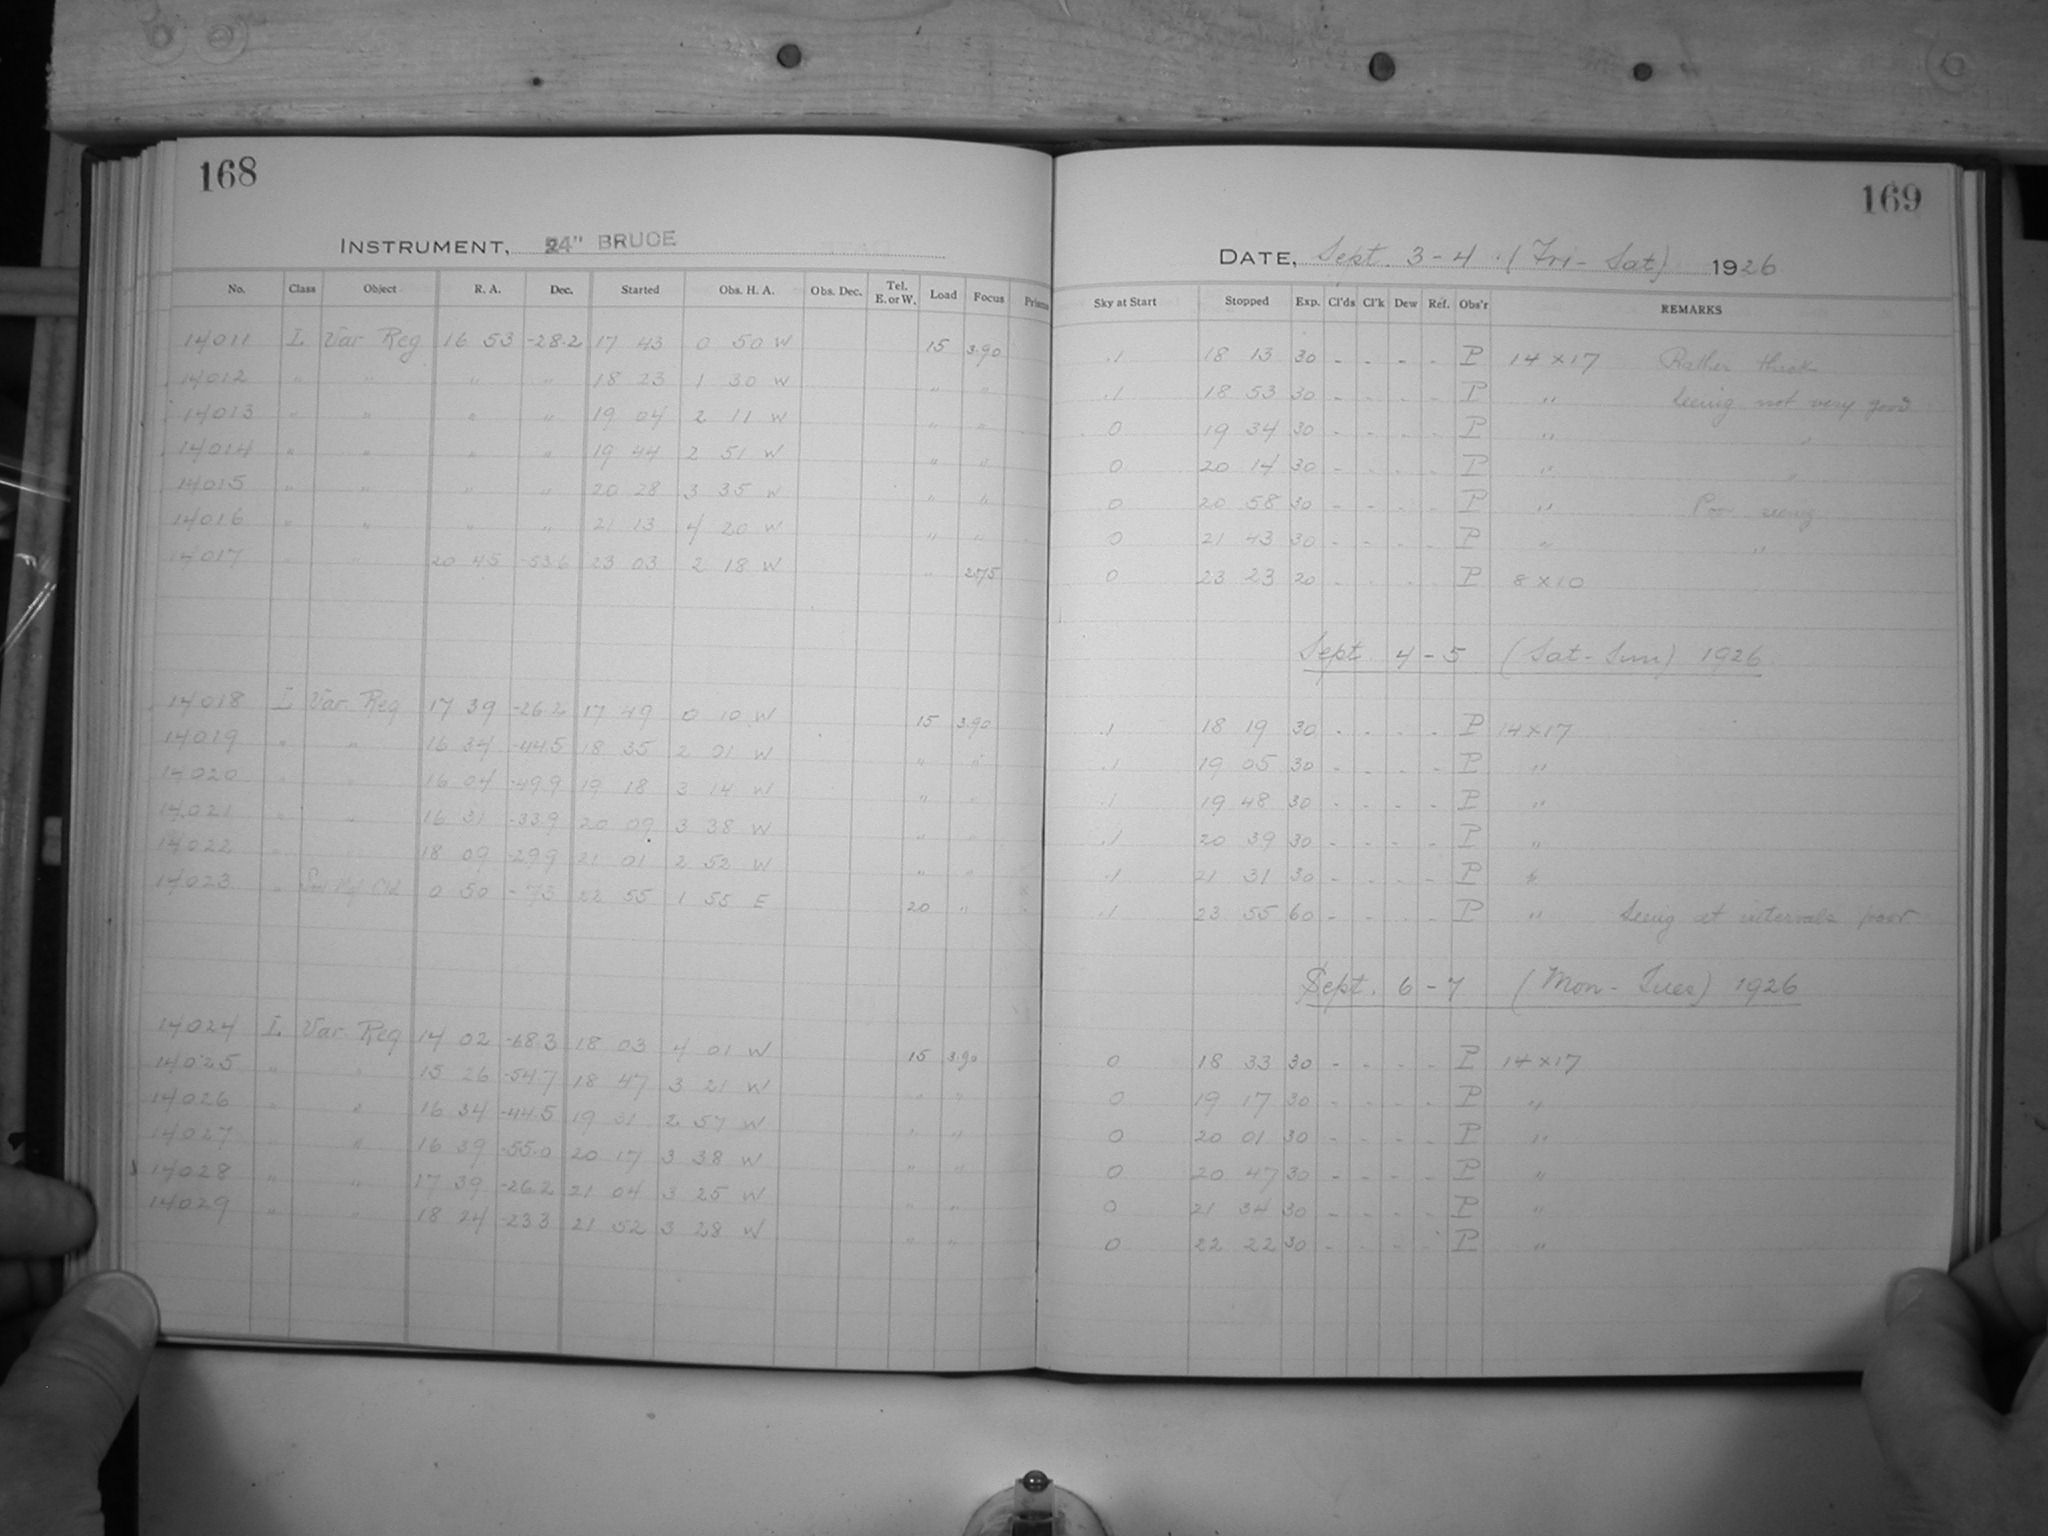 168
INSTRUMENT, 24" BRUCE
No. Class Object R. A. Dec. Started Obs. H. A. Obs. Dec. Tel. E. or W. Load Focus Prisms
14011 I Var Reg 16 53 -28.2 17 43 0 50 W 15 3.90
14012 " " " " 18 23 1 30 W " "
14013 " " " " 19 04 2 11 W " "
14014 " " " " 19 44 2 51 W " "
14015 " " " " 20 28 3 35 W " "
14016 " " " " 21 13 4 20 W " "
14017 " " 20 45 -53.6 23 03 2 18 W "
14018 I Var Reg 17 39 -26.2 17 49 0 10 W 15 3.90
14019 " " 16 34 -44.5 18 35 2 01 W " "
14020 " " 16 04 -49.9 19 18 3 14 W " "
14021 " " 16 31 -33.9 20 09 3 38 W " "
14022 18 09 -29.9 21 01 2 52 W " "
14023 " 0 50 -73 22 55 1 55 E 20 "
14024 I Var Reg 14 02 -68.3 18 03 4 01 W 15 3.90
14025 " " 15 26 -54.7 18 47 3 21 W " "
14026 " " 16 34 -44.5 19 31 2 57 W " "
14027 " " 16 39 -55.0 20 17 3 38 W " "
14028 " " 17 39 -26.2 21 04 3 25 W " "
14029 " " 18 24 -23.3 21 52 3 28 W " "
169
DATE, Sept. 3-4 (Fri-Sat) 1926
Sky at Start Stopped Exp. Cl'ds Cl'k Dew Ref. Obs'r REMARKS
.1 18 13 30 - - - - P 14 x 17 Rather thick
.1 18 53 30 - - - - P " Seeing not very good
0 19 34 30 - - - - P " "
0 20 14 30 - - - - P " "
0 20 58 30 - - - - P " Poor seeing
0 21 43 30 - - - - P " "
0 23 23 20 - - - - P 8 x 10
Sept 4-5 (Sat-Sun) 1926
.1 18 19 30 - - - - P 14 x 17
.1 19 05 30 - - - - P "
.1 19 48 30 - - - - P "
.1 20 39 30 - - - - P "
.1 21 31 30 - - - - P "
.1 23 55 60 - - - - P " Seeing at intervals poor
Sept. 6-7 (Mon-Tues) 1926
0 18 33 30 - - - - P 14 x 17
0 19 17 30 - - - - P "
0 20 01 30 - - - - P "
0 20 47 30 - - - - P "
0 21 34 30 - - - - P "
0 22 22 30 - - - - P "